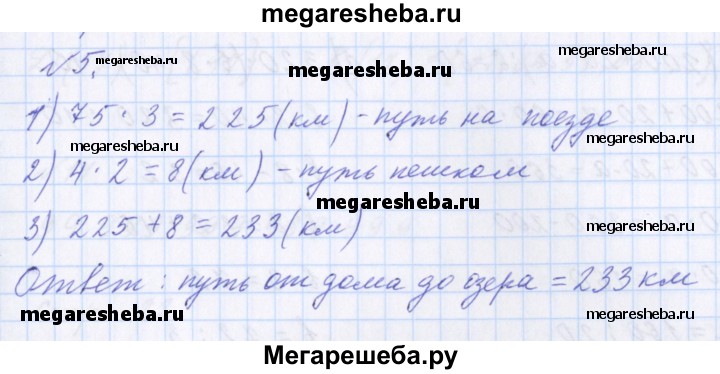 megaresheba.ru
№5.
megaresheba.ru
megaresheba.ru
1) 75 · 3 = 225 (км) - путь на поезде
megaresheba.ru
megaresheba.ru
2) 4 · 2 = 8 (км) - путь пешком
megaresheba.ru
3) 225 + 8 = 233 (км)
megaresheba.ru
Ответ: путь от дома до озера = 233 км
megaresheba.ru
megaresheba.ru
Мегарешеба.ру